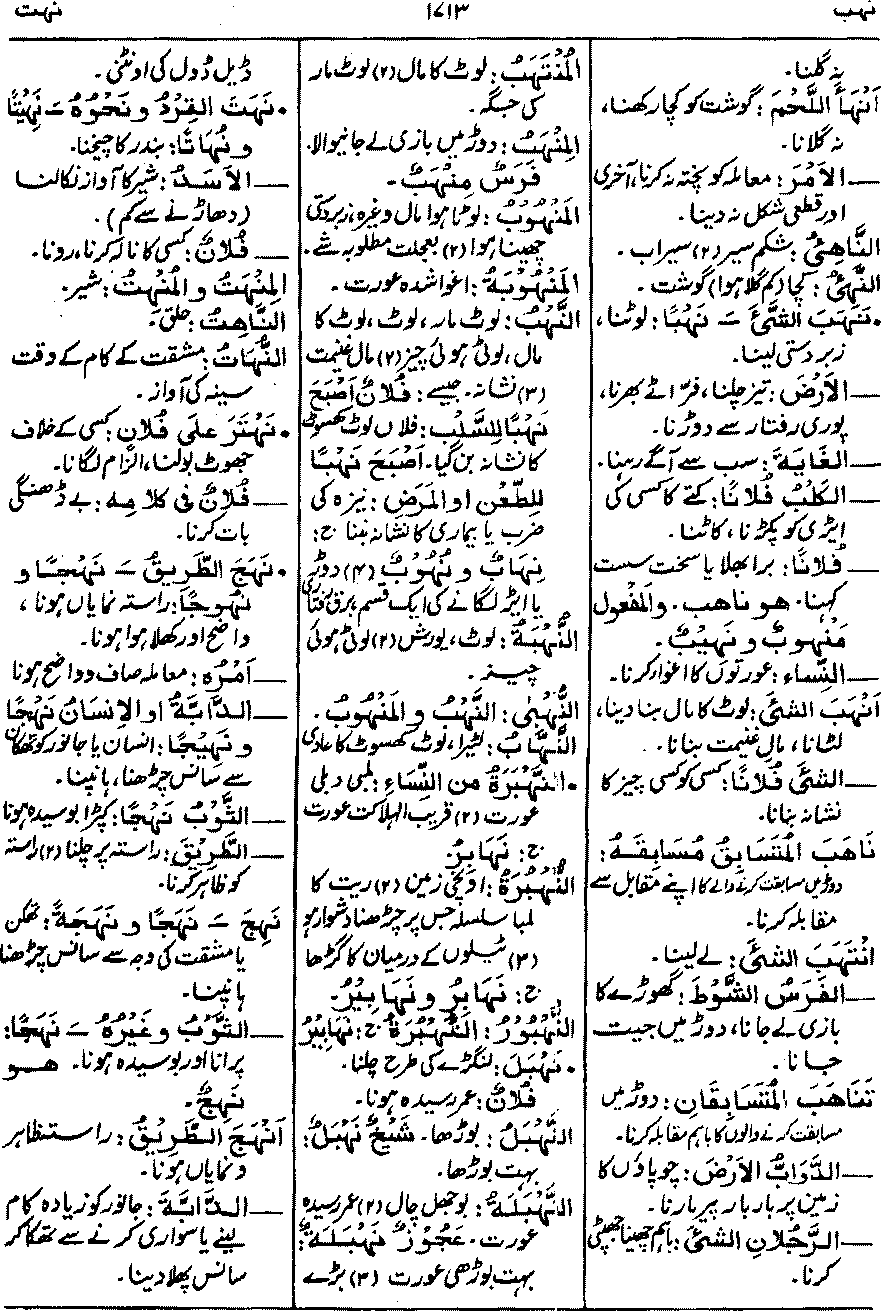 نهب
۱۷۱۳
نهت
نہ گلنا۔
اَنْهَأَ اللَّحْمَ: گوشت کو کچا رکھنا،
نہ گلانا۔
— الاَمْرَ: معاملہ کو پختہ نہ کرنا، آخری
اور قطعی شکل نہ دینا۔
النَّاهِئُ: شکم سیر (۲) سیراب۔
النَّهِئُ: کچا (کم گلا ہوا) گوشت۔
• نَهَبَ الشَّئَ — نَهْبًا: لوٹنا،
زبردستی لینا۔
— الاَرْضَ: تیز چلنا، فرّاٹے بھرنا،
پوری رفتار سے دوڑنا۔
— الغَايَةَ: سب سے آگے رہنا۔
— الكَلْبُ فُلَانًا: کتے کا کسی کی
ایڑی کو پکڑنا، کاٹنا۔
— فُلَانًا: برا بھلا یا سخت سست
کہنا۔ هو ناهب۔ والمَفْعول
مَنْهوبٌ و نَهِيْبٌ۔
— النِّساء: عورتوں کا اغوا کرنا۔
اَنْهَبَ الشئَ: لوٹ کا مال بنا دینا،
لٹانا، مالِ غنیمت بنانا۔
— الشئَ فُلَانًا: کسی کو کسی چیز کا
نشانہ بنانا۔
نَاهَبَ المُتَسَابِقُ مُسَابِقَهُ:
دوڑ میں مسابقت کرنے والے کا اپنے مقابل سے
مقابلہ کرنا۔
اِنْتَهَبَ الشئَ: لے لینا۔
— الفَرَسُ الشَّوْطَ: گھوڑے کا
بازی لے جانا، دوڑ میں جیت
جانا۔
تَنَاهَبَ المُتَسَابِقَانِ: دوڑ میں
مسابقت کرنے والوں کا باہم مقابلہ کرنا۔
— الدَّوَابُّ الاَرْضَ: چوپاؤں کا
زمین پر بار بار پیر مارنا۔
— الرَّجُلَانِ الشئَ: باہم چھینا جھپٹی
کرنا۔
المُنْتَهَبُ: لوٹ کا مال (۲) لوٹ مار
کی جگہ۔
المِنْهَبُ: دوڑ میں بازی لے جانیوالا۔
فَرَسٌ مِنْهَبٌ۔
المَنْهُوْبُ: لوٹا ہوا مال وغیرہ، زبردستی
چھینا ہوا (۲) بعجلت مطلوبہ شے۔
المَنْهُوْبَةُ: اغوا شدہ عورت۔
النَّهْبُ: لوٹ مار، لوٹ، لوٹ کا
مال، لوٹی ہوئی چیز (۲) مال غنیمت
(۳) نشانہ۔ جیسے: فُلَانٌ اَصْبَحَ
نَهْبًا لِلسَّلْبِ: فلاں لوٹ کھسوٹ
کا نشانہ بن گیا۔ اَصْبَحَ نَهْبًا
لِلطَّعْنِ اوالمَرَضِ: نیزہ کی
ضرب یا بیماری کا نشانہ بننا ج:
نِهَابٌ و نُهُوْبٌ (۴) دوڑنے
یا ایڑ لگانے کی ایک قسم، برق رفتاری
النُّهْبَةُ: لوٹ، یورش (۲) لوٹی ہوئی
چیز۔
النُّهْبٰى: النَّهْبُ و المَنْهُوبُ۔
النَّهَّابُ: لٹیرا، لوٹ کھسوٹ کا عادی
• النَّهْبَرَةُ من النِّساءِ: لمبی دبلی
عورت (۲) قریب الہلاکت عورت
ج: نَهَابِرُ
النُّهْبُرَةُ: اونچی زمین (۲) ریت کا
لمبا سلسلہ جس پر چڑھنا دشوار ہو
(۳) ٹیلوں کے درمیان کا گڑھا
ج: نَهَابِرُ و نَهَابِيْرُ۔
النُّهْبُوْرُ: النُّهْبُرَةُ ج: نَهَابِيْرُ
• نَهْبَلَ: لنگڑے کی طرح چلنا۔
فُلَانٌ: عمر رسیدہ ہونا۔
النَّهْبَلُ: بوڑھا۔ شَيْخٌ نَهْبَلٌ:
بہت بوڑھا۔
النَّهْبَلَةُ: بوجھل چال (۲) عمر رسیدہ
عورت۔ عَجُوْزٌ نَهْبَلَةٌ:
بہت بوڑھی عورت (۳) بڑے
ڈیل ڈول کی اونٹنی۔
• نَهَتَ القِرْدُ و نَحْوُهُ — نَهِيْتًا
و نُهَاتًا: بندر کا چیخنا۔
— الاَسَدُ: شیر کا آواز نکالنا
(دھاڑنے سے کم)۔
— فُلَانٌ: کسی کا نالہ کرنا، رونا۔
المِنْهَتُ و المُنْهِتُ: شیر۔
النَّاهِتُ: حلق۔
النُّهَاتُ: مشقت کے کام کے وقت
سینہ کی آواز۔
• نَهْتَرَ عَلىٰ فُلَانٍ: کسی کے خلاف
جھوٹ بولنا، الزام لگانا۔
— فُلَانٌ فى كلامِه: بے ڈھنگی
بات کرنا۔
• نَهَجَ الطَّرِيقُ — نَهْجًا و
نُهُوجًا: راستہ نمایاں ہونا،
واضح اور کھلا ہوا ہونا۔
— اَمْرُه: معاملہ صاف و واضح ہونا
— الدَّابَّةُ او الاِنسَانُ نَهْجًا
و نَهِيْجًا: انسان یا جانور کو تھکان
سے سانس چڑھنا، ہانپنا۔
— الثَّوْبُ نَهْجًا: کپڑا بوسیدہ ہونا
— الطَّرِيْقَ: راستہ پر چلنا (۲) راستہ
کو ظاہر کرنا۔
نَهِجَ — نَهَجًا و نَهْجَةً: تھکن
یا مشقت کی وجہ سے سانس چڑھنا
ہانپنا۔
— الثَّوْبُ وغَيْرُهُ — نَهَجًا:
پرانا اور بوسیدہ ہونا۔ هو
نَهِجٌ۔
اَنْهَجَ الطَّرِيْقُ: راستہ ظاہر
و نمایاں ہونا۔
— الدَّابَّةَ: جانور کو زیادہ کام
لینے یا سواری کرنے سے تھکا کر
سانس پھلا دینا۔